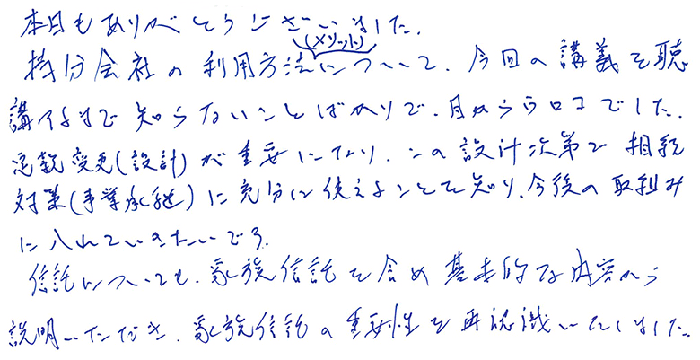 本日もありがとうございました。
(メリット)
持分会社の利用方法について、今回の講義を聴
講するまで知らないことばかりで、目からウロコでした。
定款変更(設計)が重要になり、この設計次第で相続
対策(事業承継)に充分に使えることを知り、今後の取組み
に入れていきたいです。
信託についても、家族信託を含め基本的な内容から
説明いただき、家族信託の重要性を再認識いたしました。